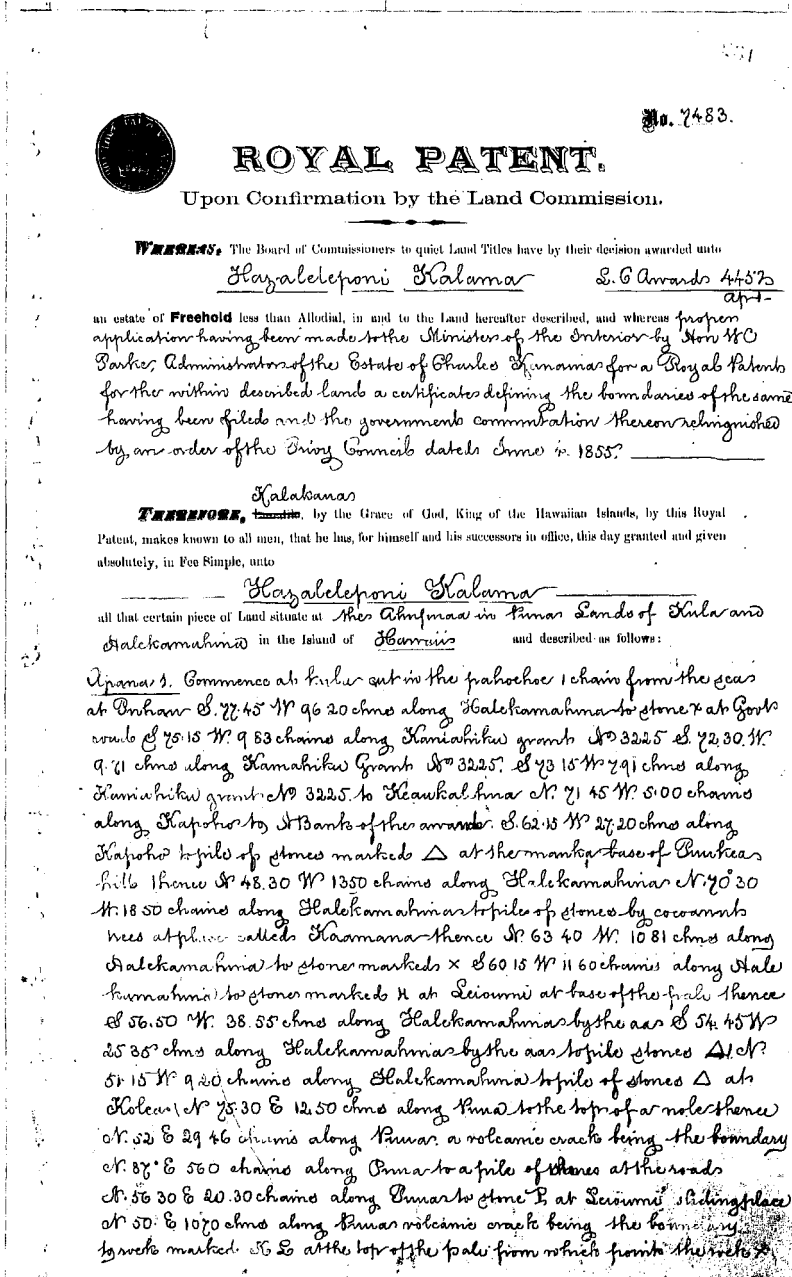 No. 7483.
ROYAL PATENT.
Upon Confirmation by the Land Commission.
WHEREAS, The Board of Commissioners to quiet Land Titles have by their decision awarded unto
Hazaleleponi Kalama L. C Awards 4452
Apt
an estate of Freehold less than Allodial, in and to the Land hereafter described, and whereas proper
application having been made to the Minister of the Interior by Hon W C
Parke, Administrator of the Estate of Charles Kanaina for a Royal Patent
for the within described land a certificate defining the boundaries of the same
having been filed and the government commutation thereon relinquished
by an order of the Privy Council dated June 1855.
Kalakaua
THEREFORE, by the Grace of God, King of the Hawaiian Islands, by this Royal
Patent, makes known to all men, that he has, for himself and his successors in office, this day granted and given
absolutely, in Fee Simple, unto
Hazaleleponi Kalama
all that certain piece of Land situate at the Ahupuaa in Puna Lands of Kula and
Halekamahina in the Island of Hawaii and described as follows:
Apana 1. Commence at cut in the pahoehoe 1 chain from the sea
at S. 77.45 W 96 20 chns along Halekamahina to stone x at Govt
road S 75.15 W. 9 83 chains along Kaniahiku grant No 3225 S. 72.30. W.
9.71 chns along Kaniahiku Grant No 3225. S 73 15 W 7.91 chns along
Kaniahiku grant No 3225. to N. 71 45 W. 5.00 chains
along Kapoho to N Bank of the S. 62.15 W 27.20 chns along
Kapoho to pile of stones marked △ at the mauka base of Puukea
hill thence N 48.30 W 1350 chains along Halekamahina N. 70° 30
W. 18 50 chains along Halekamahina to pile of stones by cocoanut
trees at place called Kaamana thence N. 63 40 W. 10 81 chns along
Halekamahina to stone marked × S 60 15 W 11 60 chains along Hale
kamahina to stone marked H at Leioumi at base of the pali thence
S 56.50 W. 38.55 chns along Halekamahina by the aa S 54. 45 W
25 35 chns along Halekamahina by the aa to pile stones △ N.
51 15 W 9 20 chains along Halekamahina to pile of stones △ at
Kolea N 75.30 E 12.50 chns along Puna to the top of a hole thence
N. 52 E 29 46 chains along Puna. a volcanic crack being the boundary
N. 87° E 560 chains along Puna to a pile of stones at the road
N. 56 30 E 20.30 chains along Puna to stone at Leioumi sliding place
N 50. E 1070 chns along Puna volcanic crack being the boundary
to rock marked at the top of the pali from which point the rock x